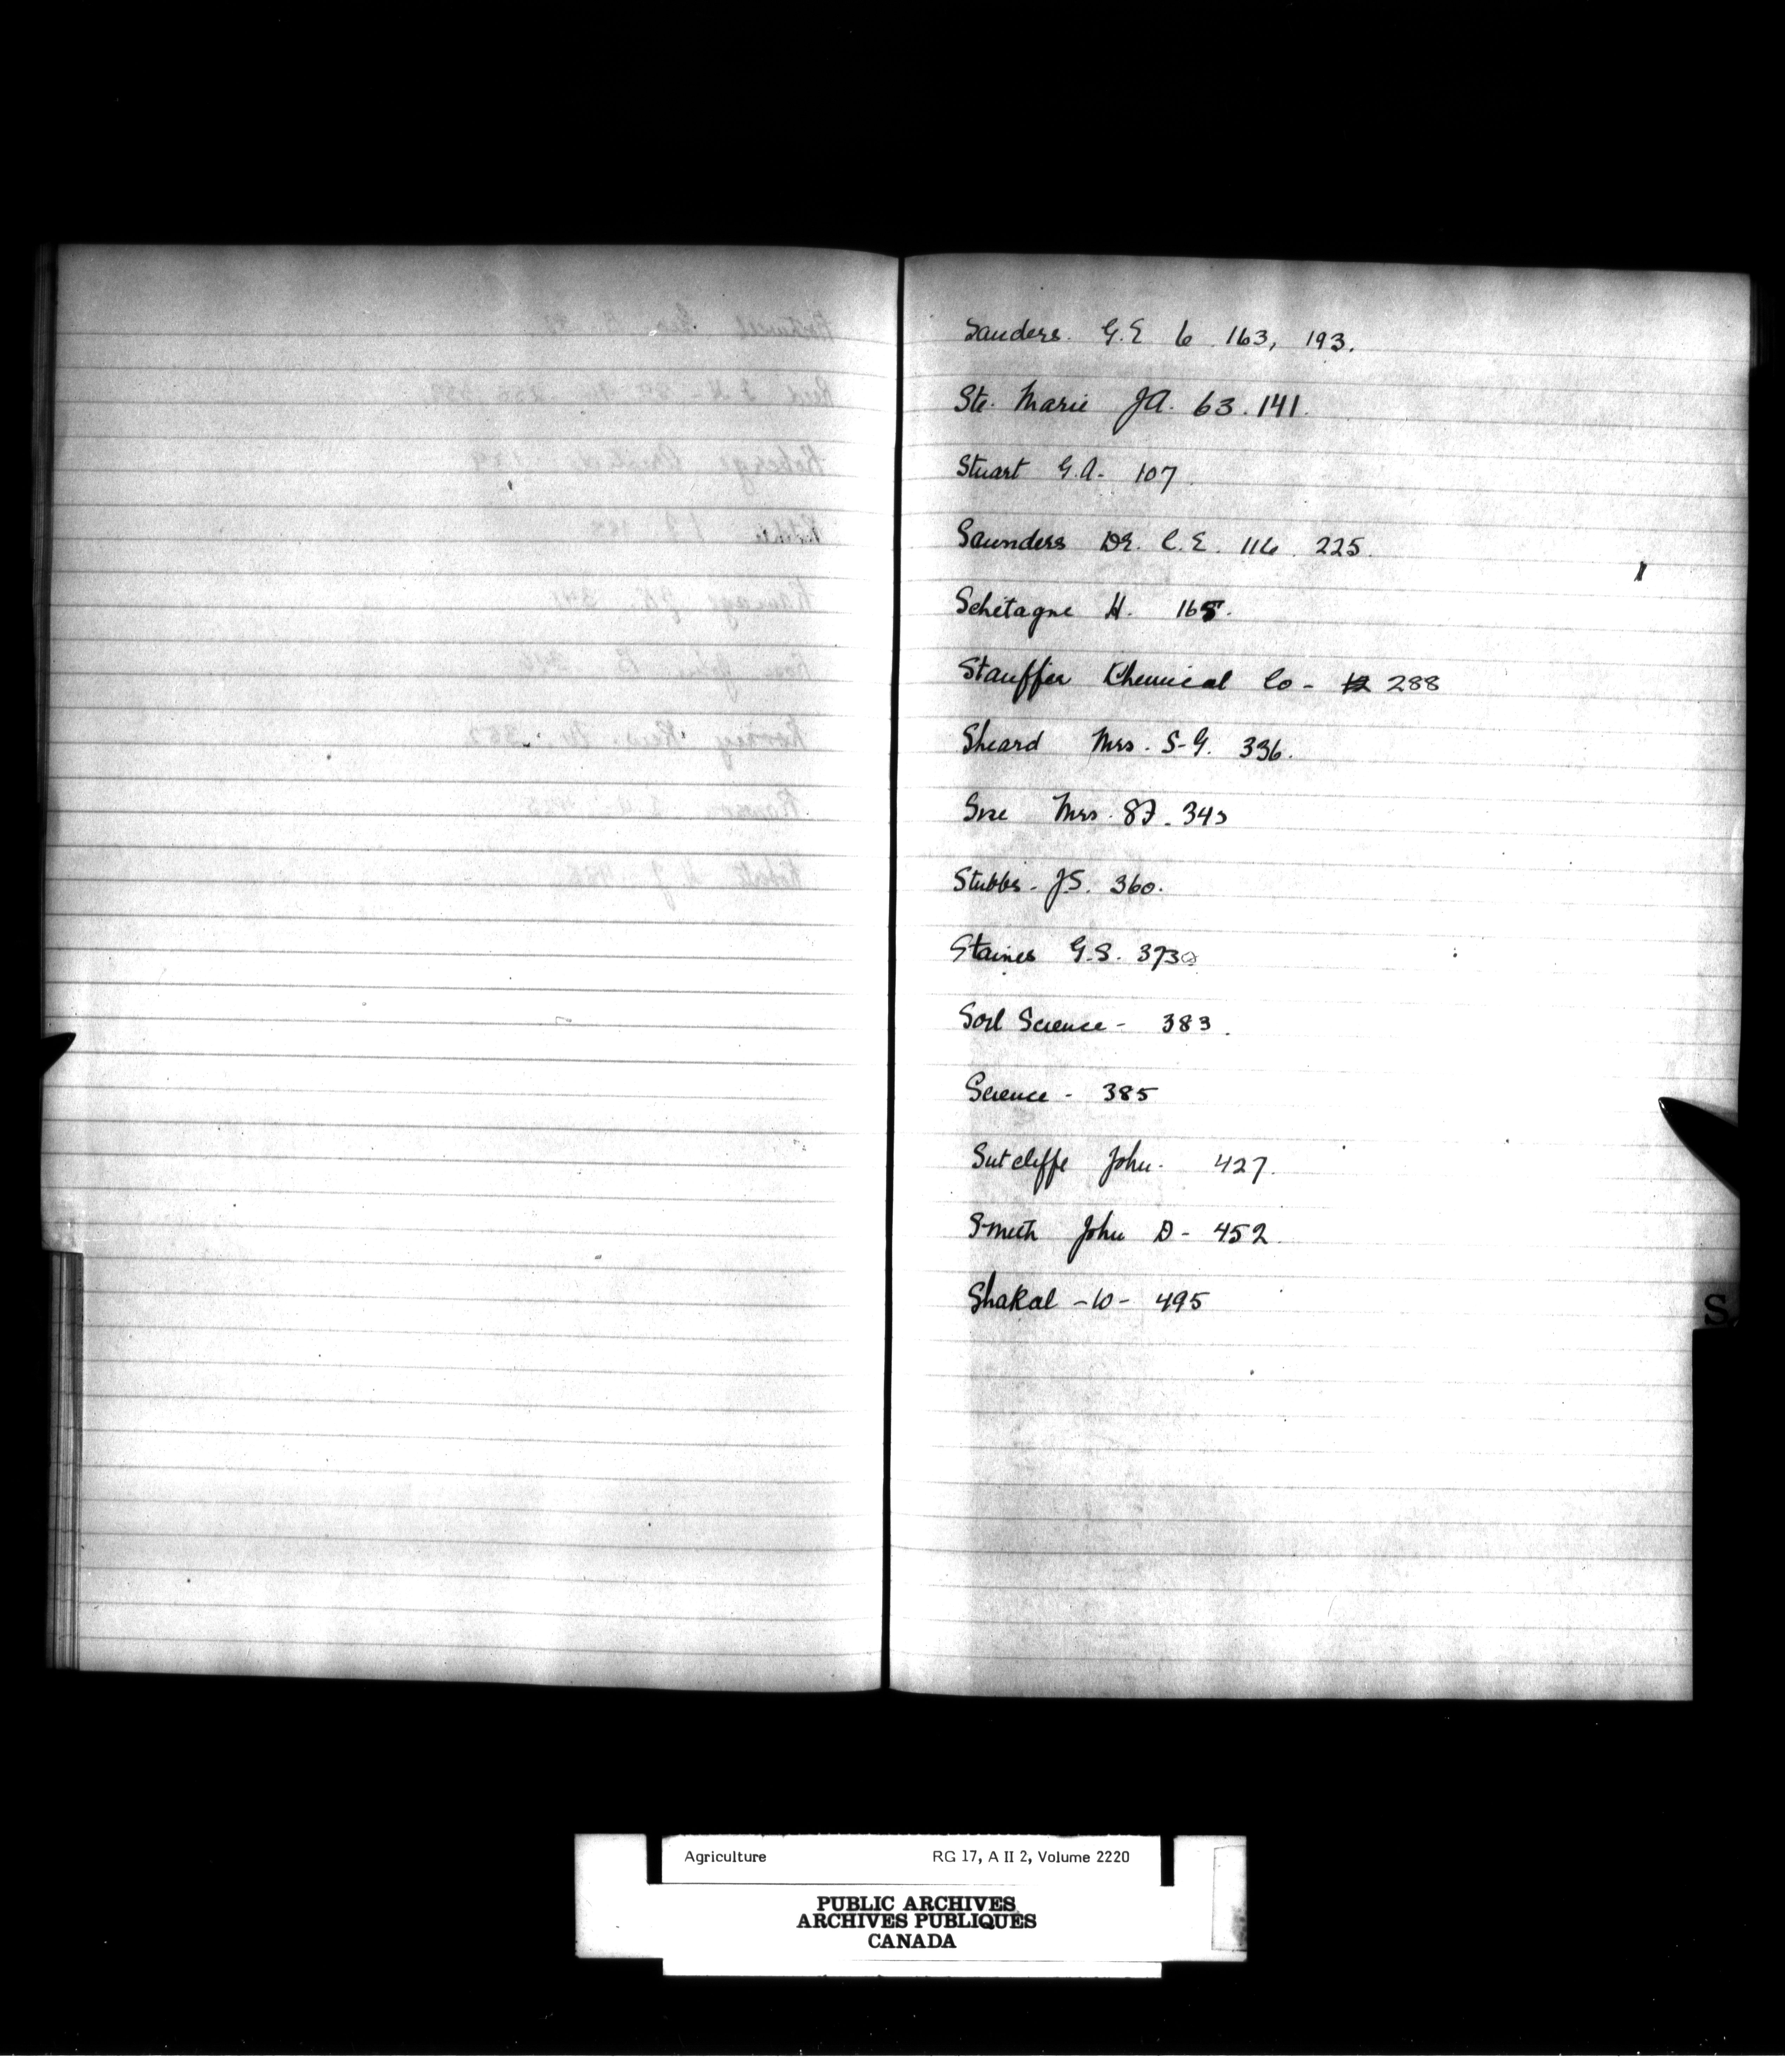 Sanders. G.E 6 163, 193.
Ste. Marie J.A. 63. 141.
Stuart G.A. - 107
Saunders Dr. C.E. 116. 225.
Schetagne H. 165.
Stauffer Chemical Co - 288
Sheard Mrs. S-G. 336.
Mrs.
Stubbs - J.S. 360.
Staines G.S. 373
Soil Science - 383.
Science - 385
Sutcliffe John. 427.
Smith John D - 452
Shakal - W - 495
S
Agriculture RG 17, A II 2, Volume 2220
PUBLIC ARCHIVES
ARCHIVES PUBLIQUES
CANADA